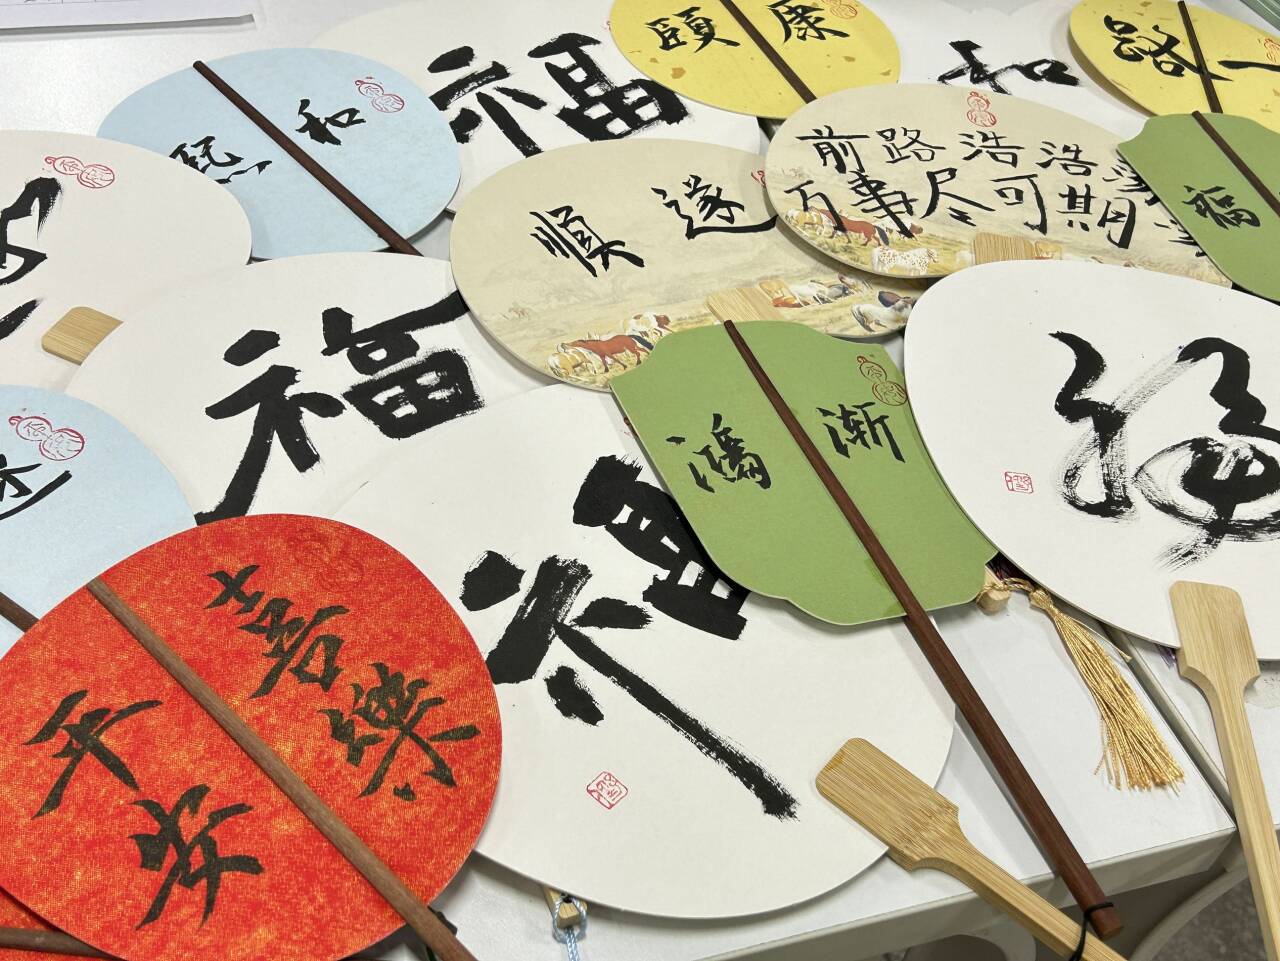 頤康
和
路一
熙和
福
順遂
前路浩浩
万事尽可期
福
福
鴻漸
福
福
平安
喜樂